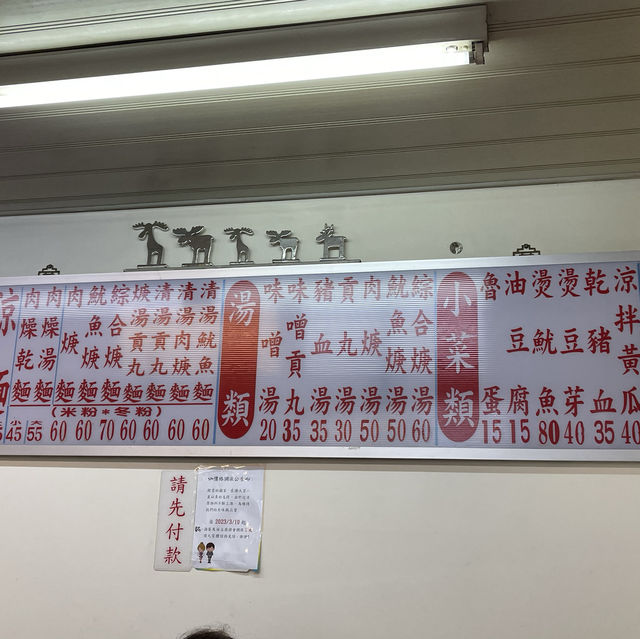 涼麵
肉燥乾麵 45
肉燥湯麵 55
肉焿麵 60
魷魚焿麵 60
綜合焿麵 70
焿湯貢丸麵 60
清湯貢丸麵 60
清湯肉焿麵 60
清湯魷魚麵 60
(米粉*冬粉)
湯類
味噌湯 20
味噌貢丸 35
豬血湯 35
貢丸湯 30
肉焿湯 50
魷魚焿湯 50
綜合焿湯 60
小菜類
魯蛋 15
油豆腐 15
燙魷魚 80
燙豆芽 40
乾豬血 35
涼拌黃瓜 40
請先付款
2023/3/10